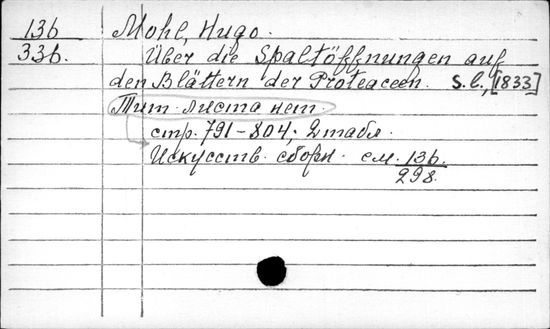 13b Mohl, Hugo.
33b. Über die Spaltöffnungen auf
den Blättern der Proteaceen. s.l., [1833]
Тит. листа нет.
стр. 791-804; 2 табл.
Искусств. сборн. см. 13b.
298.